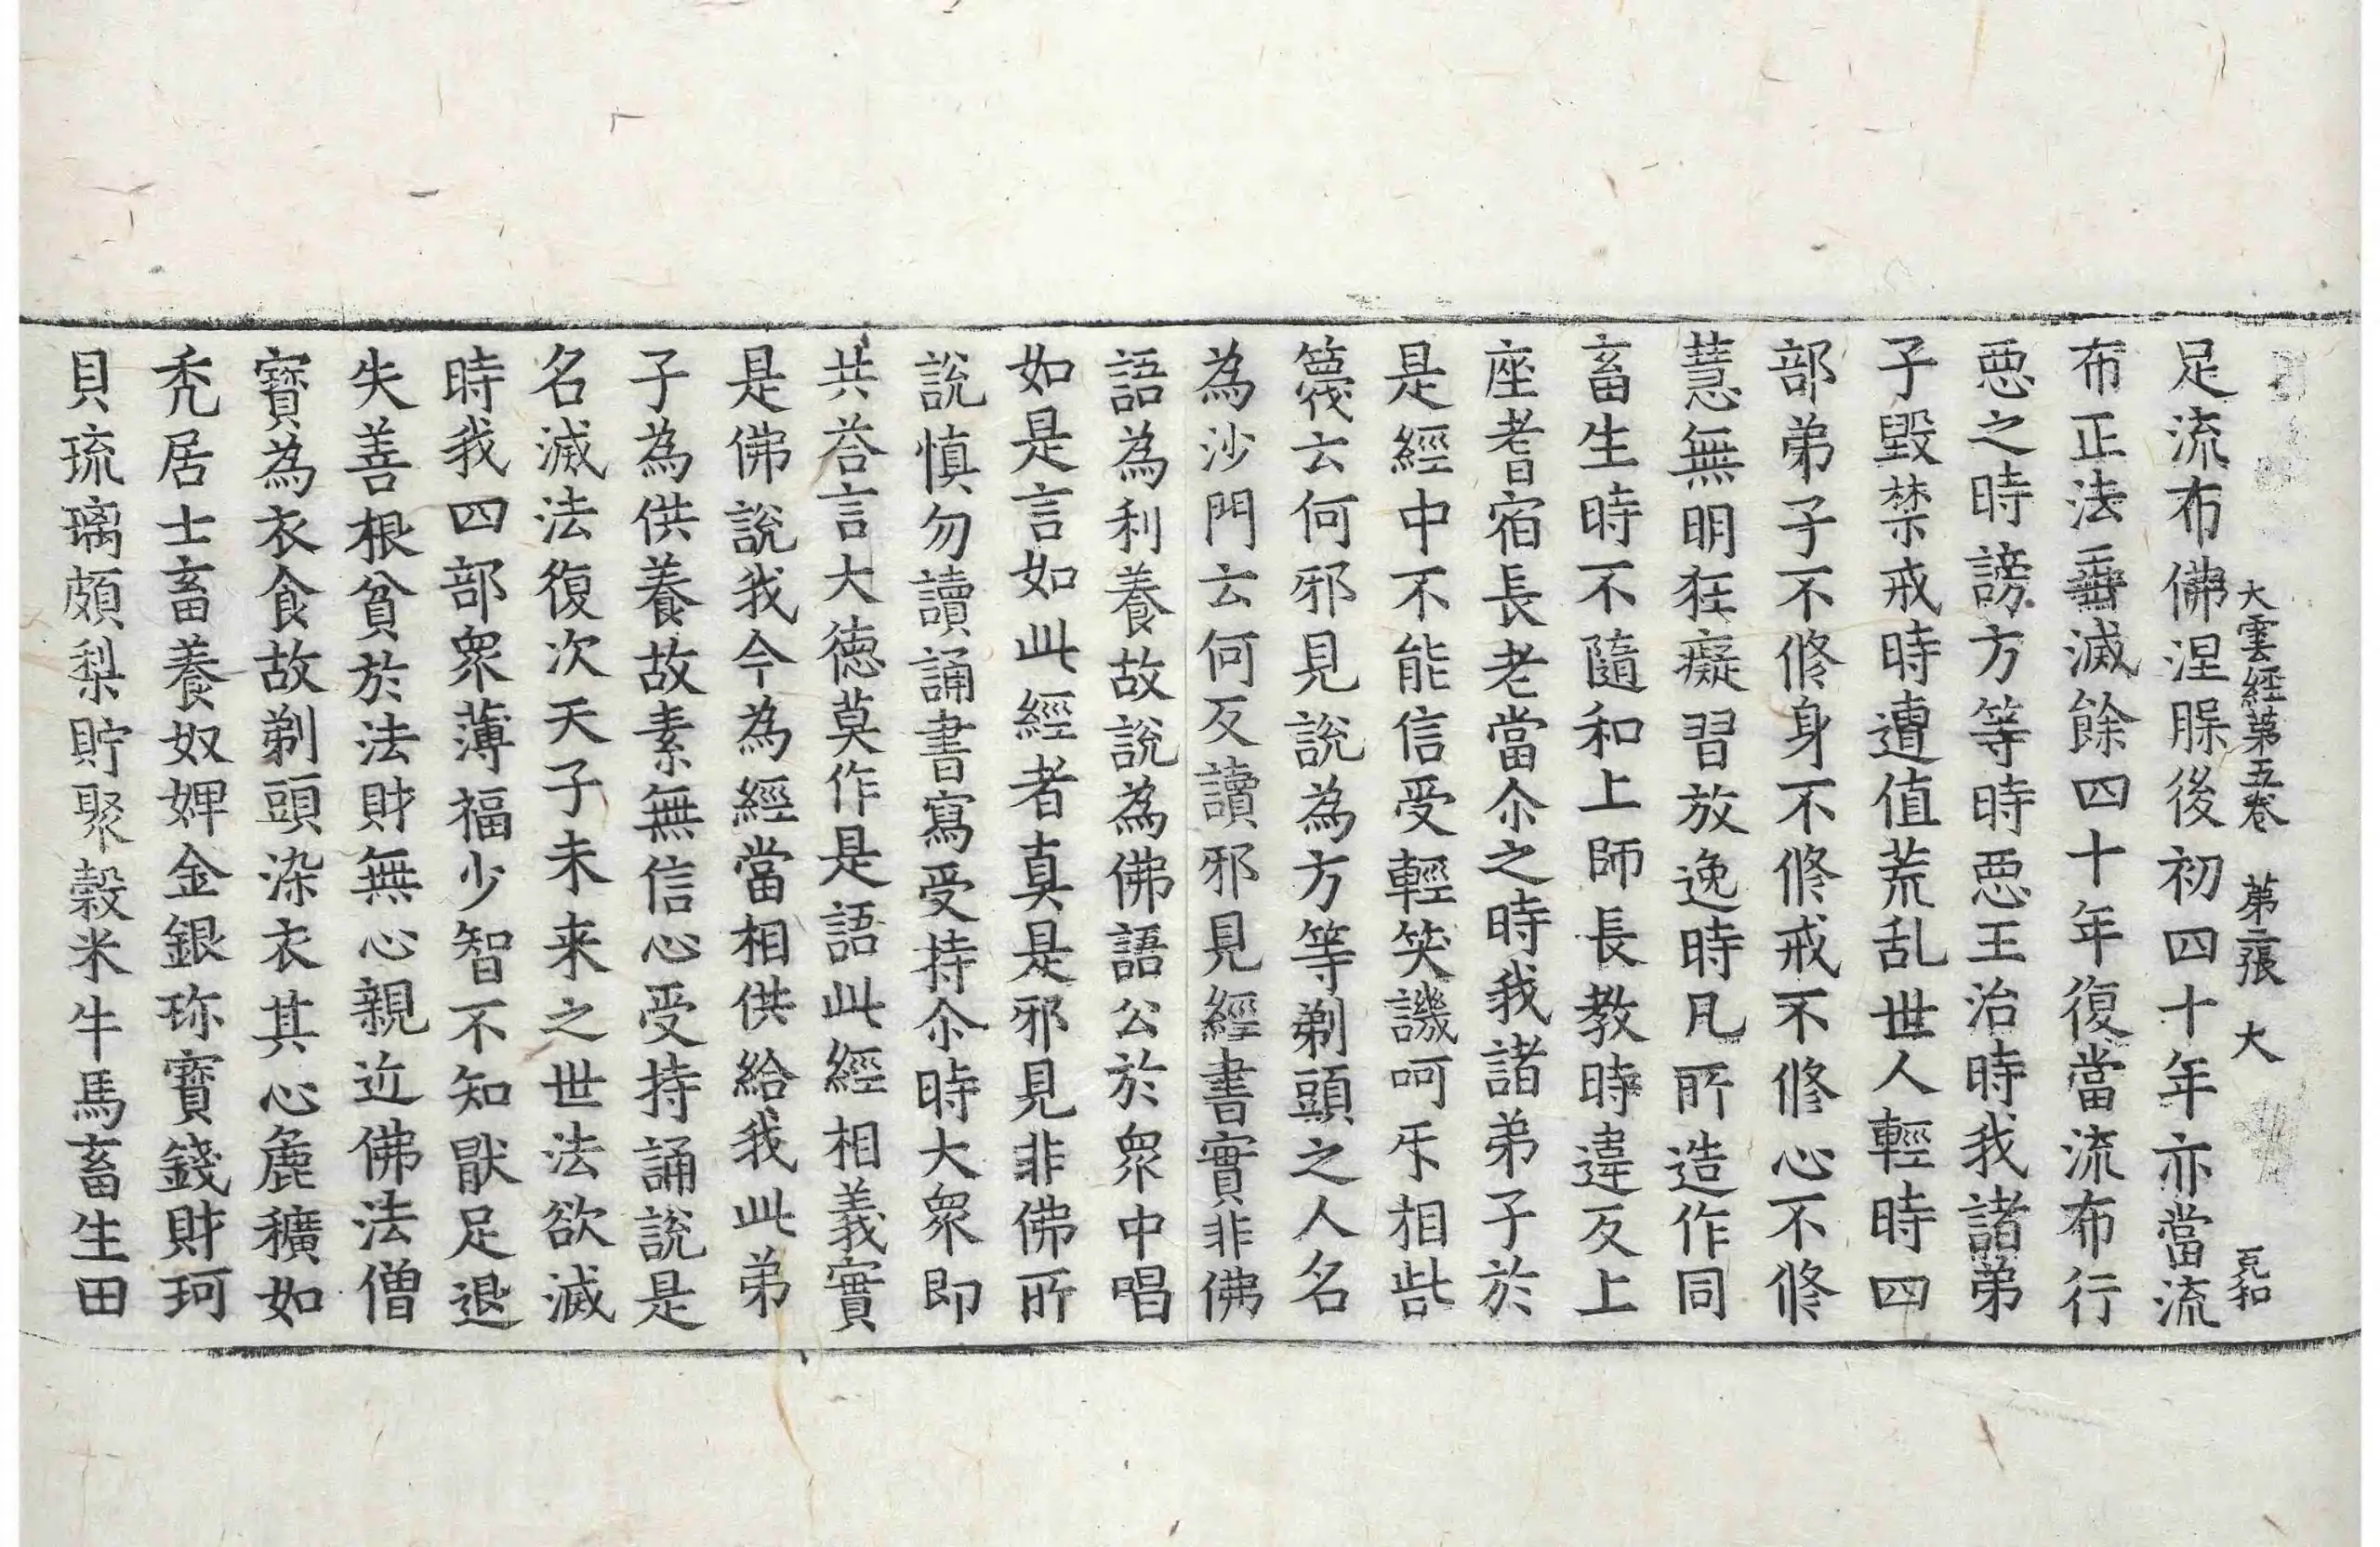 大雲経第五卷 第二張 大
足流布佛涅脵後初四十年亦當流
布正法垂滅餘四十年復當流布行
惡之時謗方等時惡王治時我諸弟
子毀禁戒時遭值荒乱世人輕時四
部弟子不修身不修戒不修心不修
慧無明狂癡習放逸時凡所造作同
畜生時不隨和上師長教時違反上
座耆宿長老當尒之時我諸弟子於
是經中不能信受輕笑譏呵㸦相呰
篾云何邪見說為方等剃頭之人名
為沙門云何反讀邪見經書實非佛
語為利養故說為佛語公於衆中唱
如是言如此經者真是邪見非佛所
說慎勿讀誦書寫受持尒時大衆即
共荅言大德莫作是語此經相義實
是佛說我今為經當相供給我此弟
子為供養故素無信心受持誦說是
名滅法復次天子未来之世法欲滅
時我四部衆薄福少智不知猒足退
失善根貧於法財無心親近佛法僧
寶為衣食故剃頭染衣其心麁穬如
禿居士畜養奴婢金銀珎寶錢財珂
貝琉璃頗梨貯聚穀米牛馬畜生田